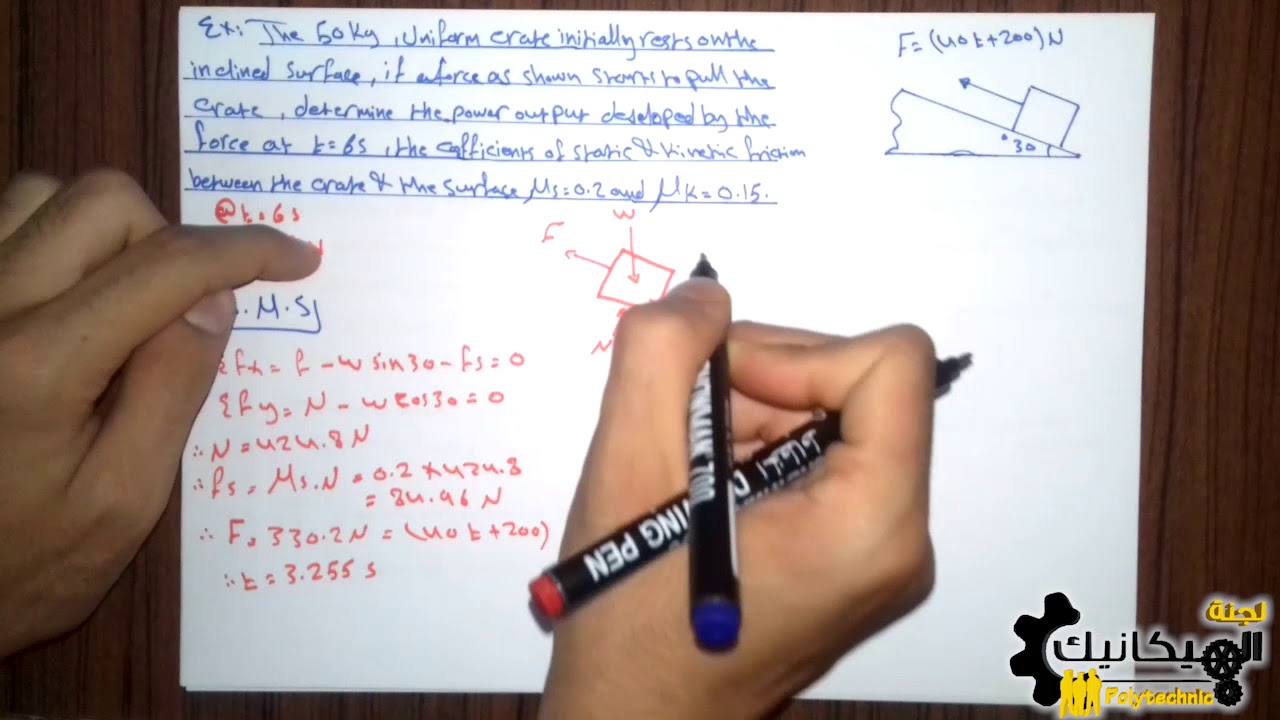 Ex: The 50Kg, Uniform crate initially rests on the
inclined surface, if a force as shown starts to pull the
crate, determine the power output developed by the
force at t=6s, the cofficients of static & Kinetic friction
between the crate & the surface μs=0.2 and μK=0.15.
F=(40t+200)N
30
@t=6s
N
.M.S
W
F
N
Σfx = F - w sin30 - fs = 0
Σfy = N - w cos30 = 0
∴ N = 424.8 N
∴ fs = μs.N = 0.2 * 424.8
= 84.96 N
∴ F = 330.2N = (40t+200)
∴ t = 3.255 s
PERMARK 700
ING PEN
لجنة
الميكانيك
Polytechnic